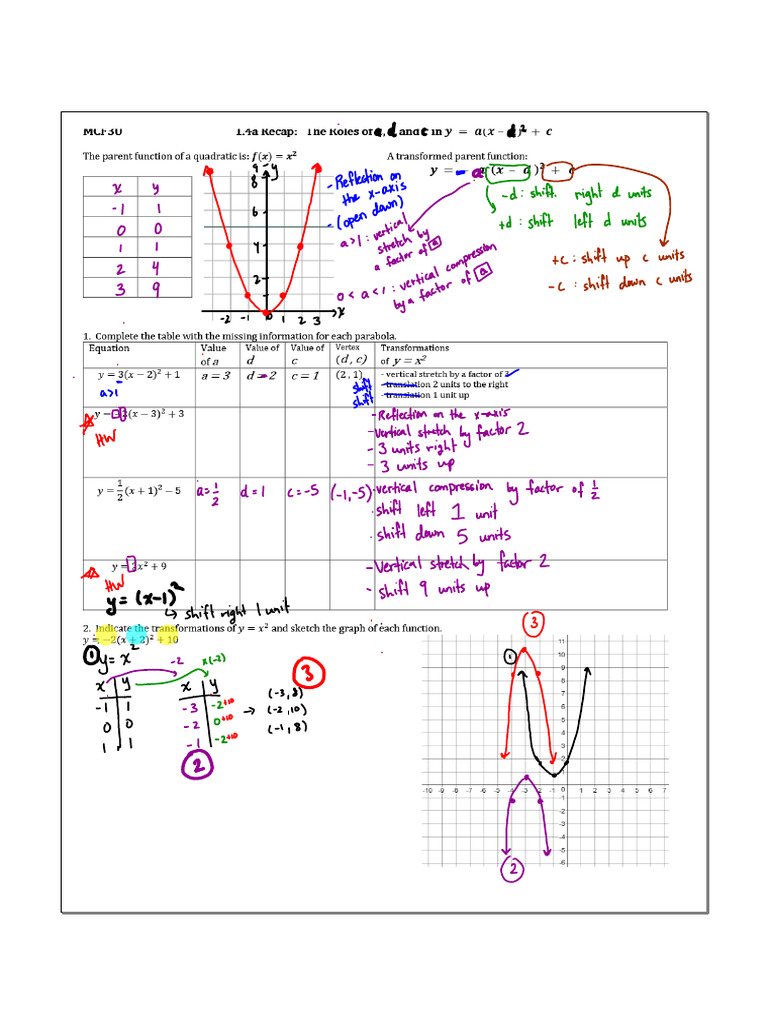 MCF3U 1.4a Recap: The Roles of a, d and c in y = a(x − d)² + c
The parent function of a quadratic is: f(x) = x²
A transformed parent function:
y = - a (x − d)² + c
x y
-1 1
0 0
1 1
2 4
3 9
9 y
8
6
4
2
-2 -1 0 1 2 3 x
- Reflection on
the x-axis
- (open down)
a>1 : vertical
stretch by
a factor of a
0 < a < 1 : vertical compression
by a factor of a
-d : shift right d units
+d : shift left d units
+c : shift up c units
-c : shift down c units
1. Complete the table with the missing information for each parabola.
Equation Value of a Value of d Value of c Vertex (d, c) Transformations of y = x²
y = 3(x − 2)² + 1 a = 3 d = 2 c = 1 (2, 1)
a>1
- vertical stretch by a factor of 3
shift - translation 2 units to the right
shift - translation 1 unit up
y = -2(x − 3)² + 3
HW
- Reflection on the x-axis
- vertical stretch by factor 2
- 3 units right
- 3 units up
y = 1/2(x + 1)² − 5 a = 1/2 d = 1 c = -5 (-1, -5)
· vertical compression by factor of 1/2
· shift left 1 unit
· shift down 5 units
y = 2x² + 9
HW
- Vertical stretch by factor 2
- shift 9 units up
y = (x-1)²
↳ shift right 1 unit
2. Indicate the transformations of y = x² and sketch the graph of each function.
y = −2(x + 2)² + 10
① y = x²
-2 x(-2)
x y x y
-1 1 -3 -2+10 → (-3, 8)
0 0 -2 0+10 (-2, 10)
1 1 -1 -2+10 (-1, 8)
②
③
③
①
11
10
9
8
7
6
5
4
3
2
1
-10 -9 -8 -7 -6 -5 -4 -3 -2 -1 0 1 2 3 4 5 6 7
-1
-2
-3
-4
-5
-6
②